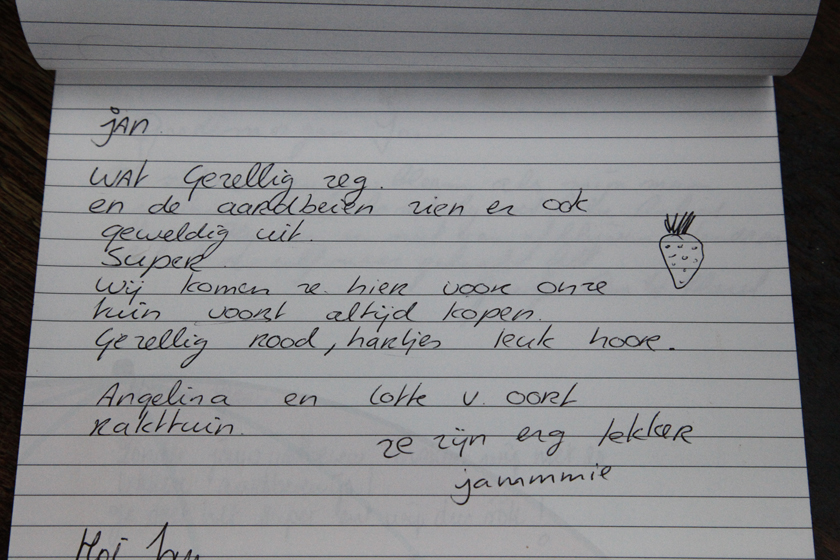 jan
Wat Gezellig zeg.
en de aardbeien zien er ook
geweldig uit.
Super
Wij komen ze hier voor onze
tuin voort altijd kopen.
Gezellig rood, hartjes leuk hoor.
Angelina en Lotte v. oort
ze zijn erg lekker
jammmie
Hoi